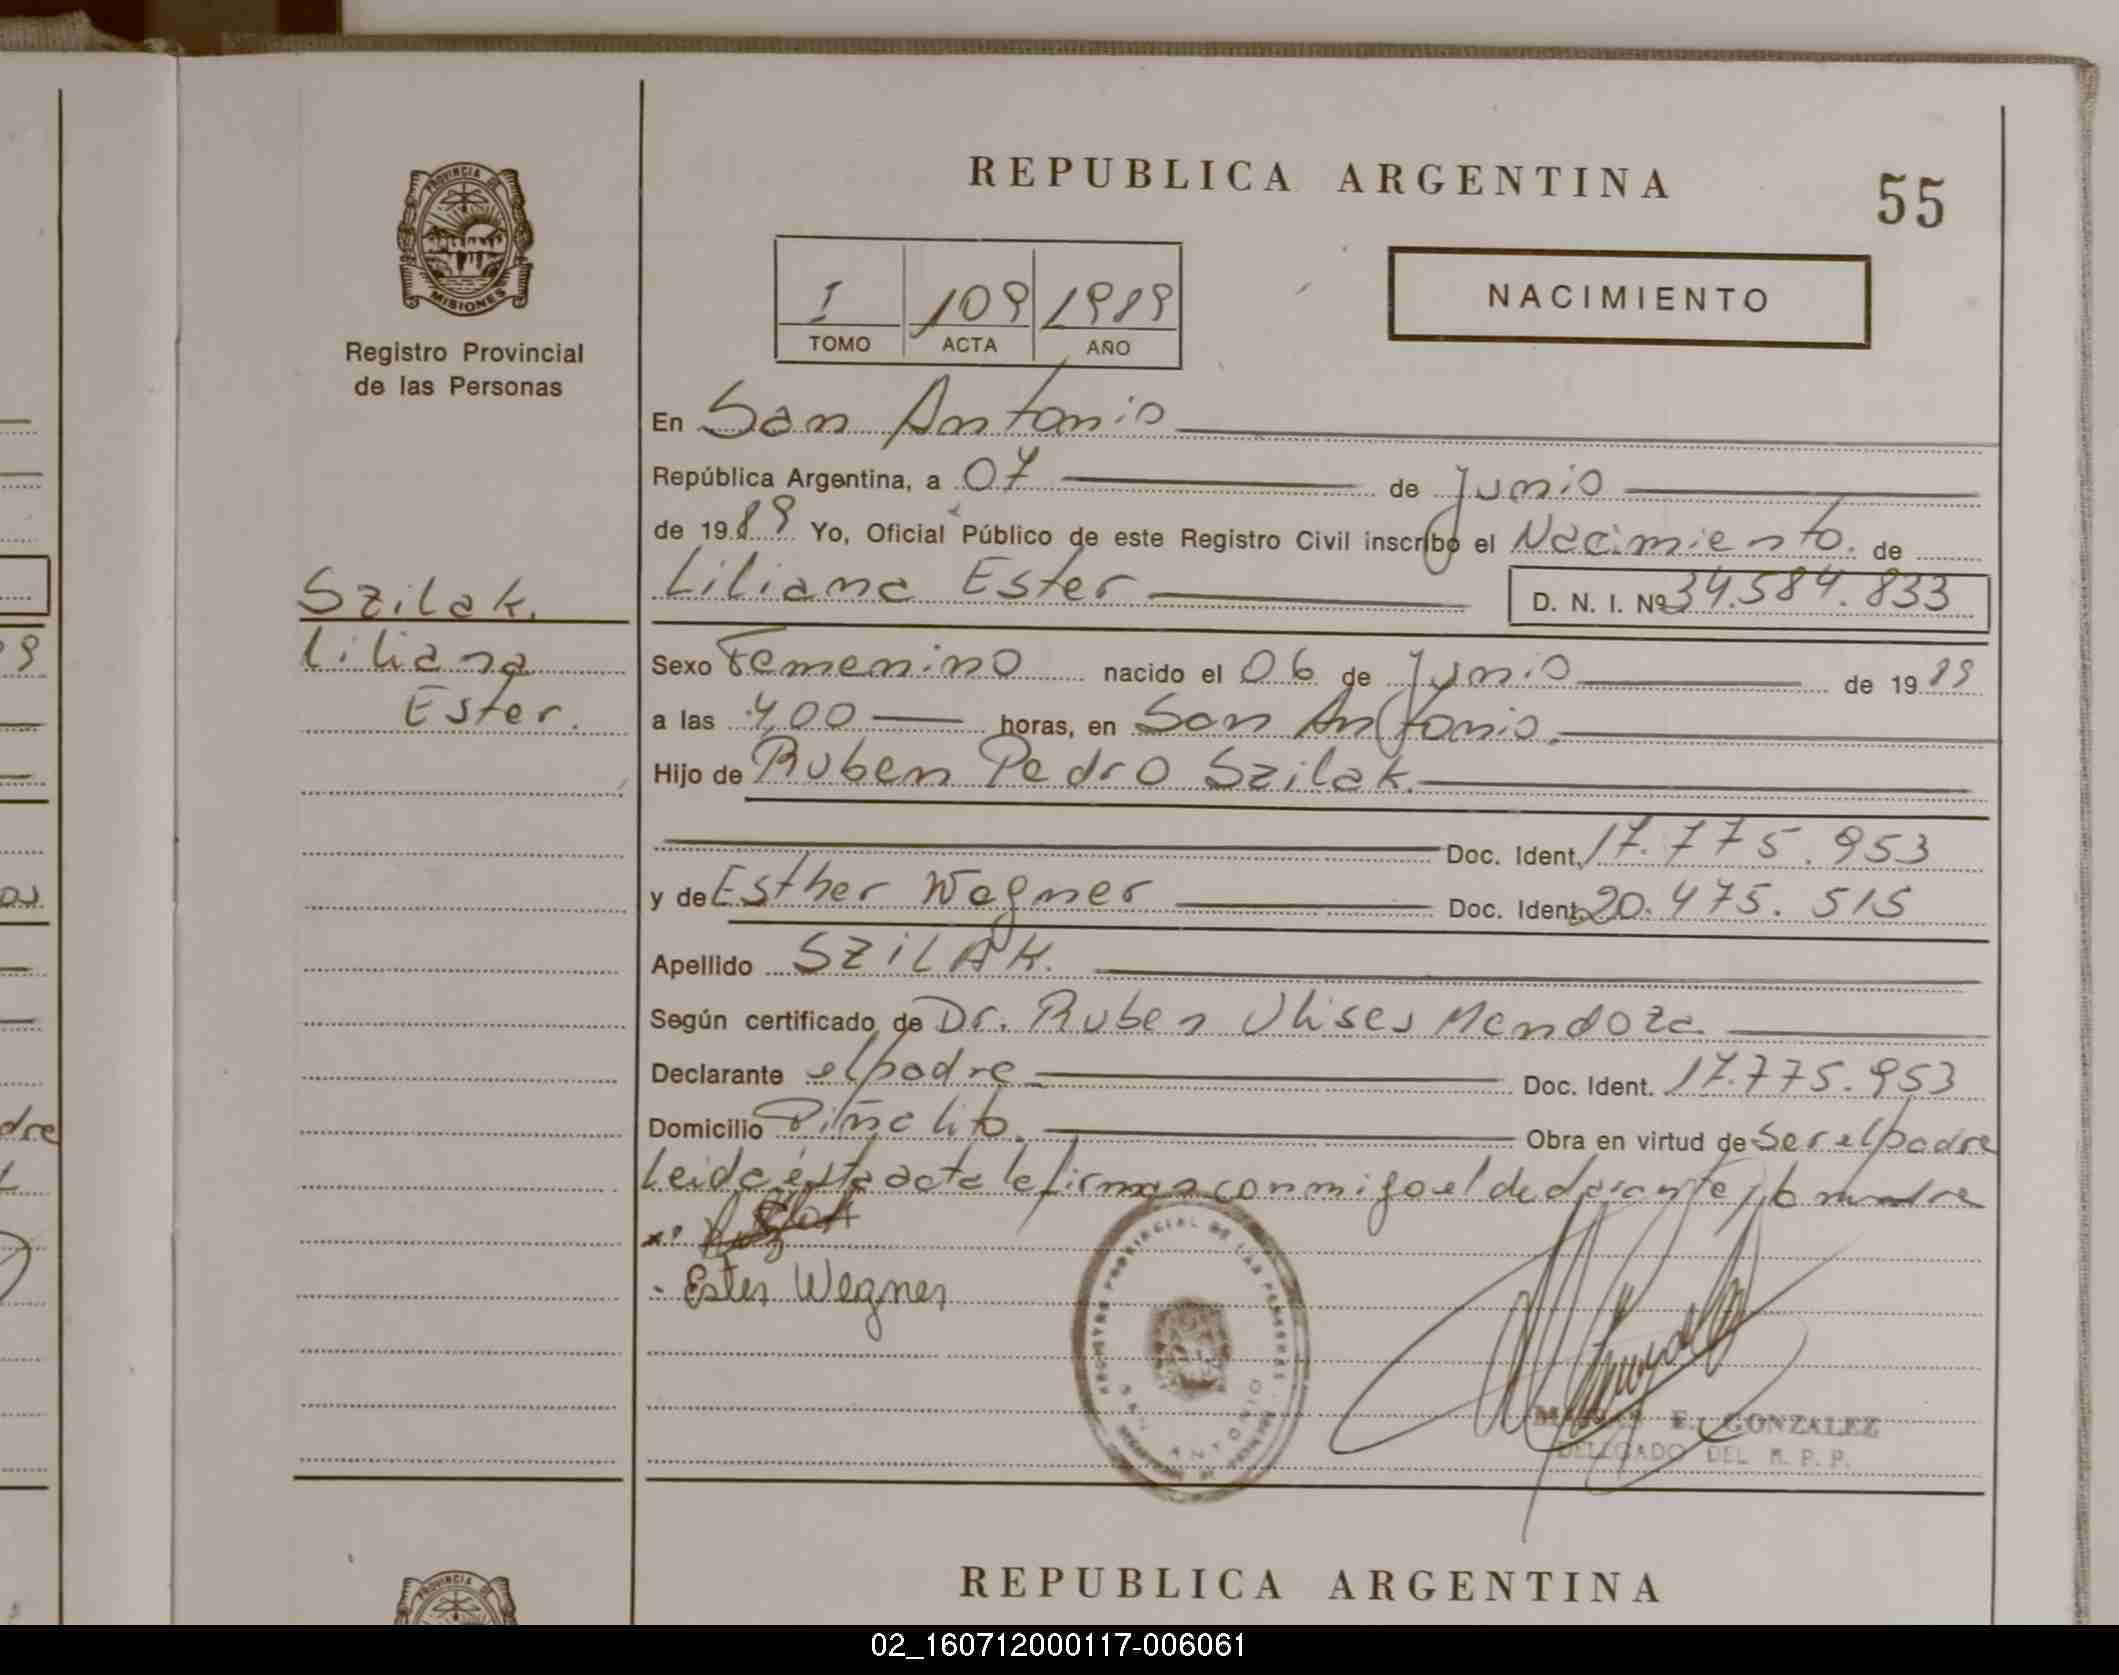 REPUBLICA ARGENTINA
55
PROVINCIA DE
MISIONES
Registro Provincial
de las Personas
I 109 1989
TOMO ACTA AÑO
NACIMIENTO
En San Antonio
República Argentina, a 07 de Junio
de 1989 Yo, Oficial Público de este Registro Civil inscribo el Nacimiento. de
Liliana Ester D. N. I. Nº 34.584.833
Szilak.
Liliana
Ester.
Sexo Femenino nacido el 06 de Junio de 1989
a las 4,00 horas, en San Antonio.
Hijo de Ruben Pedro Szilak.
Doc. Ident. 17.775.953
y de Esther Wegner Doc. Ident. 20.475.515
Apellido SZILAK.
Según certificado de Dr. Ruben Ulises Mendoza
Declarante el padre Doc. Ident. 17.775.953
Domicilio Piñalito. Obra en virtud de Ser el padre
Leida ésta acta la firman conmigo el declarante y la madre
Ester Wegner
REGISTRO PROVINCIAL DE LAS PERSONAS
SAN ANTONIO
E. GONZALEZ
DELEGADO DEL R. P. P.
PROVINCIA DE
REPUBLICA ARGENTINA
dre
02_160712000117-006061